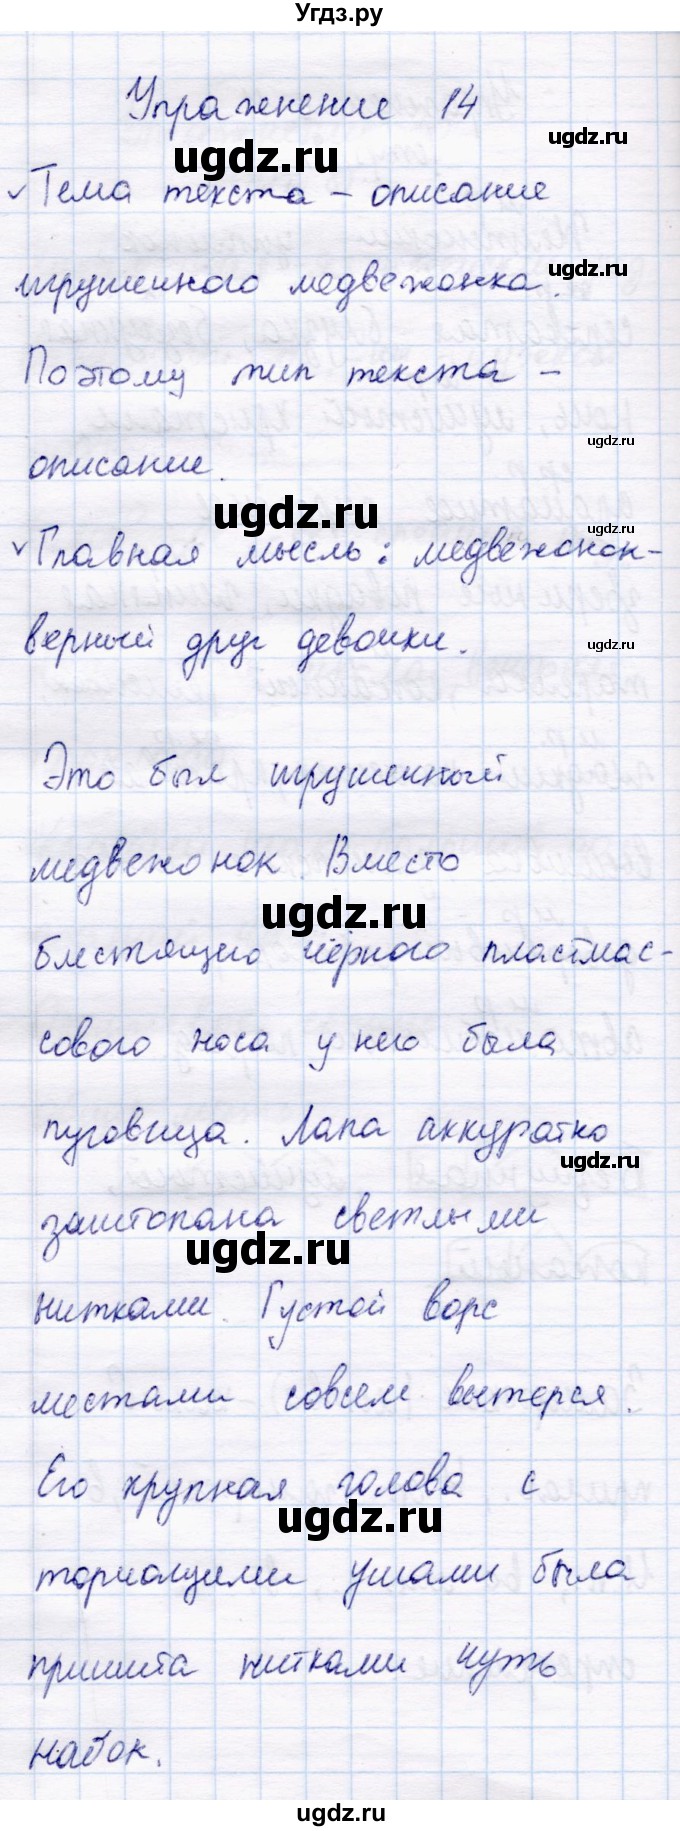 Угдз.ру
Упражнение 14
ugdz.ru
ugdz.ru
Тема текста – описание
игрушечного медвежонка.
ugdz.ru
Поэтому тип текста –
ugdz.ru
описание.
ugdz.ru
ugdz.ru
Главная мысль: медвежонок-
верный друг девочки.
ugdz.ru
Это был игрушечный
медвежонок. Вместо
ugdz.ru
блестящего чёрного пластмас-
сового носа у него была
пуговица. Лапа аккуратно
ugdz.ru
заштопана светлыми
ugdz.ru
нитками. Густой ворс
местами совсем вытерся.
Его крупная голова с
ugdz.ru
торчащими ушами была
пришита нитками чуть
набок.
ugdz.ru